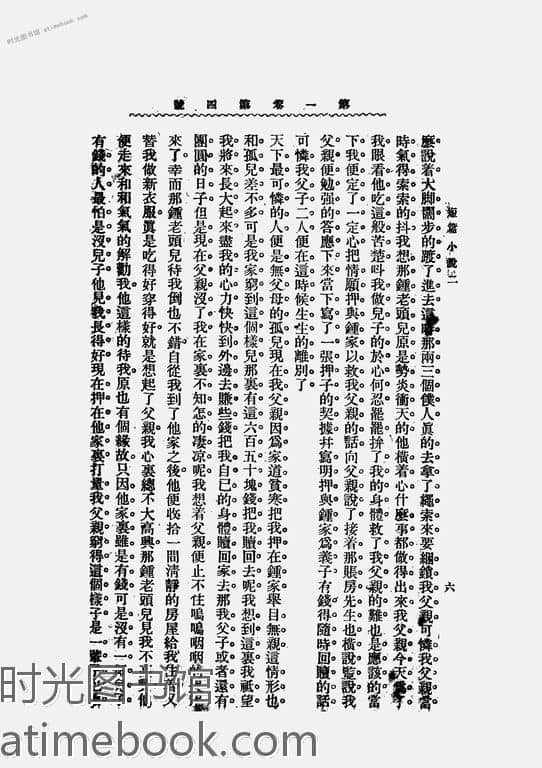 时光图书馆 atimebook.com
第一卷第四號
短篇小說二
六
麽說着大脚闊步的踱了進去這時那兩三個僕人眞的去拿了繩索來要綑鎖我父親可憐我父親當
時氣得索索的抖我想那鍾老頭兒原是勢炎衝天的他橫着心什麽事都做得出來我父親今天
我眼看他吃這般苦楚呌我做兒子的於心何忍罷罷拚了我的身體救了我父親的難也是應該的當
下我便定了一定心把情願押與鍾家以救我父親的話向父親說了接着那賬房先生也橫說竪說我
父親便勉强的答應下來當下寫了一張押子的契據幷寫明押與鍾家爲義子有錢得隨時回贖的話
可憐我父子二人便在這時候生生的離別了
天下最可憐的人便是無父母的孤兒現在我父親因爲家道貧寒把我押在鍾家舉目無親這情形也
和孤兒差不多可是我家窮到這個樣兒那裏有這六百五十塊錢把我贖回去呢我想到這裏我祇望
我將來長大起來盡我的心力快快到外邊去賺些錢把我自已的身體贖回家去那我父子或者還有
團圓的日子但是現在父親沒了我在家裏不知怎的凄凉呢我想着父親便止不住嗚嗚咽咽的
來了幸而那鍾老頭兒待我倒也不錯自從我到了他家之後他便收拾一間清靜的房屋給我
替我做新衣服眞是吃得好穿得好就是想起了父親我心裏總不大高興那鍾老頭兒見我不
便走來和和氣氣的解勸我他這樣的待我原也有個緣故只因他家裏雖是有錢可是沒有一
有錢的人最怕是沒兒子他見我長得好現在押在他家裏打量我父親窮得這個樣子是一
时光图书馆
atimebook.com